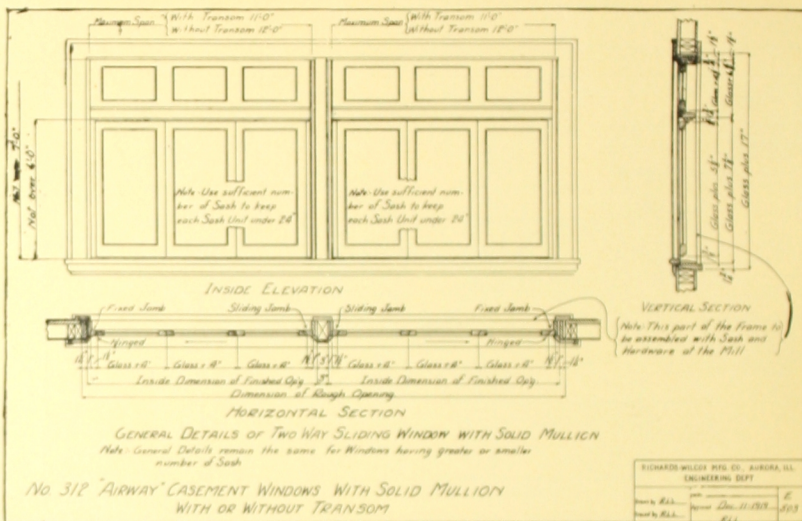 Maximum Span { With Transom 11'-0"
Without Transom 12'-0"
Maximum Span { With Transom 11'-0"
Without Transom 12'-0"
Not over 7'-0"
Not over 6'-0"
Note: Use sufficient num-
ber of Sash to keep
each Sash Unit under 24"
Note: Use sufficient num-
ber of Sash to keep
each Sash Unit under 24"
Glass plus 17"
INSIDE ELEVATION
VERTICAL SECTION
Note: This part of the Frame to
be assembled with Sash and
Hardware at the Mill
Fixed Jamb
Sliding Jamb
Sliding Jamb
Fixed Jamb
Hinged
Hinged
Inside Dimension of Finished Op'g
Inside Dimension of Finished Op'g
Dimension of Rough Opening
HORIZONTAL SECTION
GENERAL DETAILS OF TWO WAY SLIDING WINDOW WITH SOLID MULLION
Note: General Details remain the same for Windows having greater or smaller
number of Sash
No. 312 "AIRWAY" CASEMENT WINDOWS WITH SOLID MULLION
WITH OR WITHOUT TRANSOM
RICHARDS-WILCOX MFG. CO., AURORA, ILL.
ENGINEERING DEPT
Drawn by R.L.L.
Traced by R.L.L.
Approved Dec. 11-1919
R.L.L.
E
503